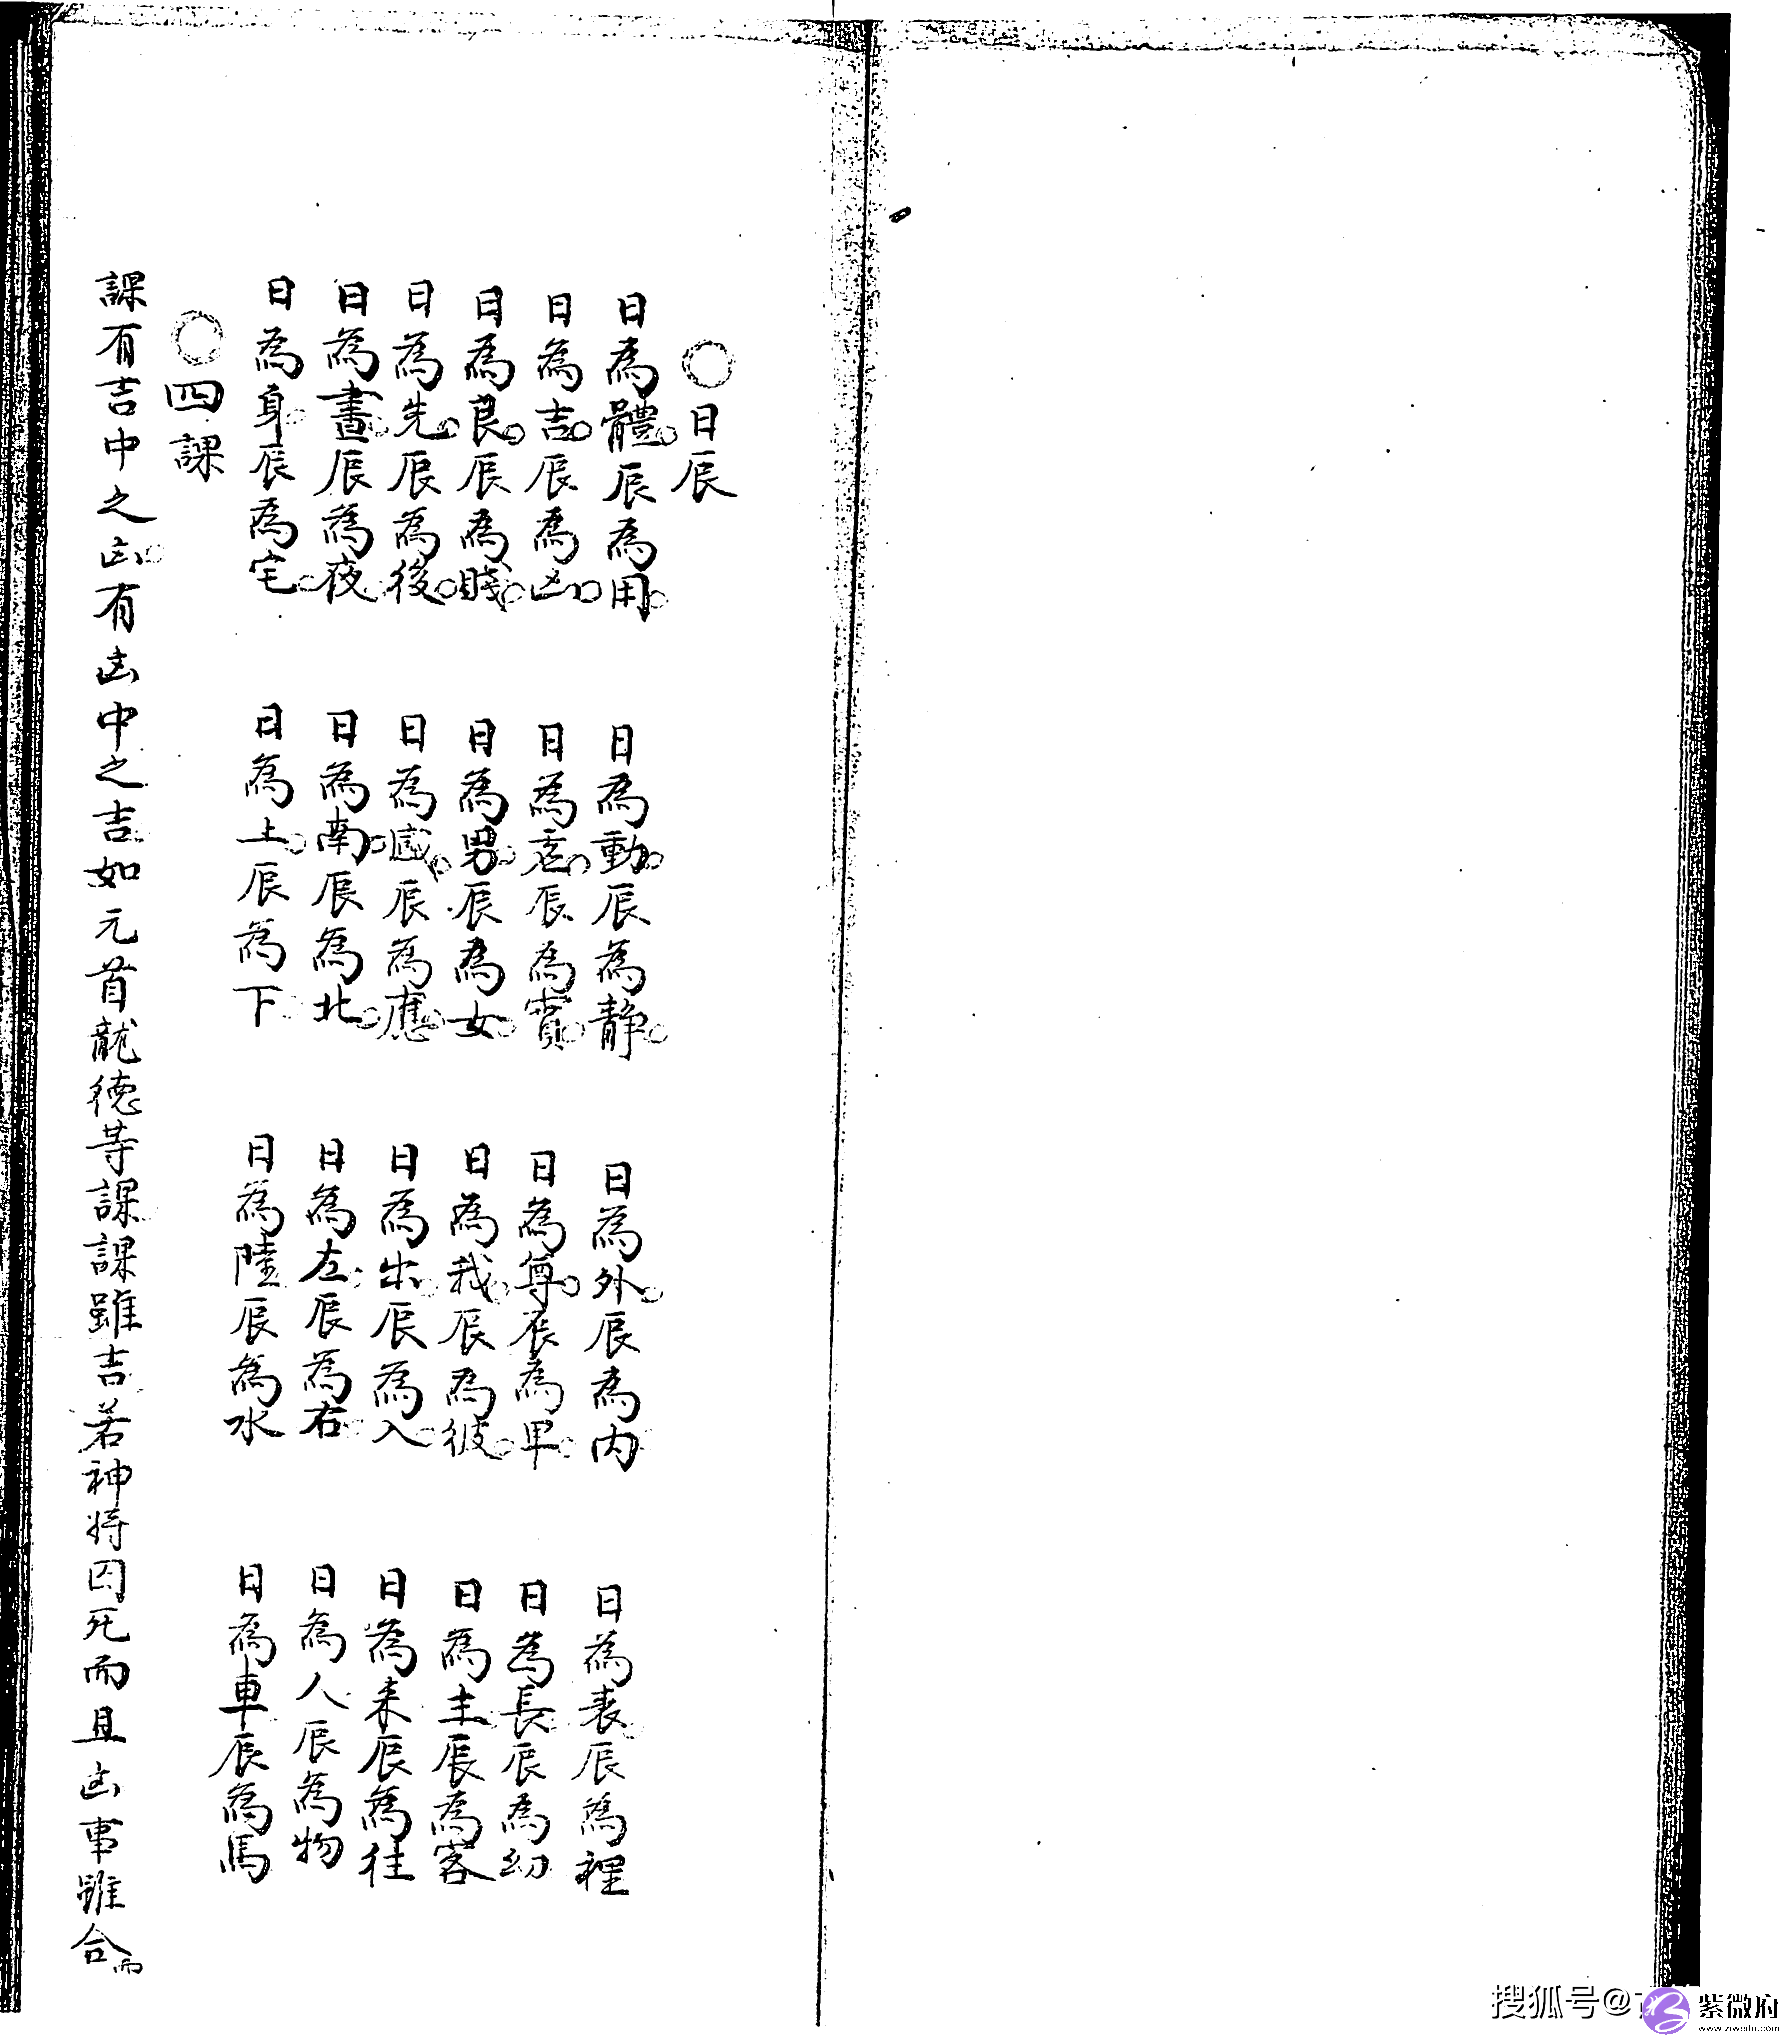 ○日辰
日為體○辰為用○ 日為動○辰為静○ 日為外○辰為内 日為表辰為裡
日為吉○辰為凶○ 日為虛○辰為實○ 日為尊○辰為卑○ 日為長辰為幼
日為良○辰為賤○ 日為男○辰為女○ 日為我○辰為彼○ 日為主辰為客
日為先○辰為後○ 日為感○辰為應○ 日為出○辰為入○ 日為来辰為往
日為晝○辰為夜○ 日為南○辰為北○ 日為左○辰為右○ 日為人辰為物
日為身○辰為宅○ 日為上○辰為下○ 日為陸辰為水 日為車辰為馬
○四課
課有吉中之凶○有凶中之吉如元首龍德等課課雖吉若神将囚死而且凶事雖合而
搜狐号@
紫微府
www.ziweifu.com